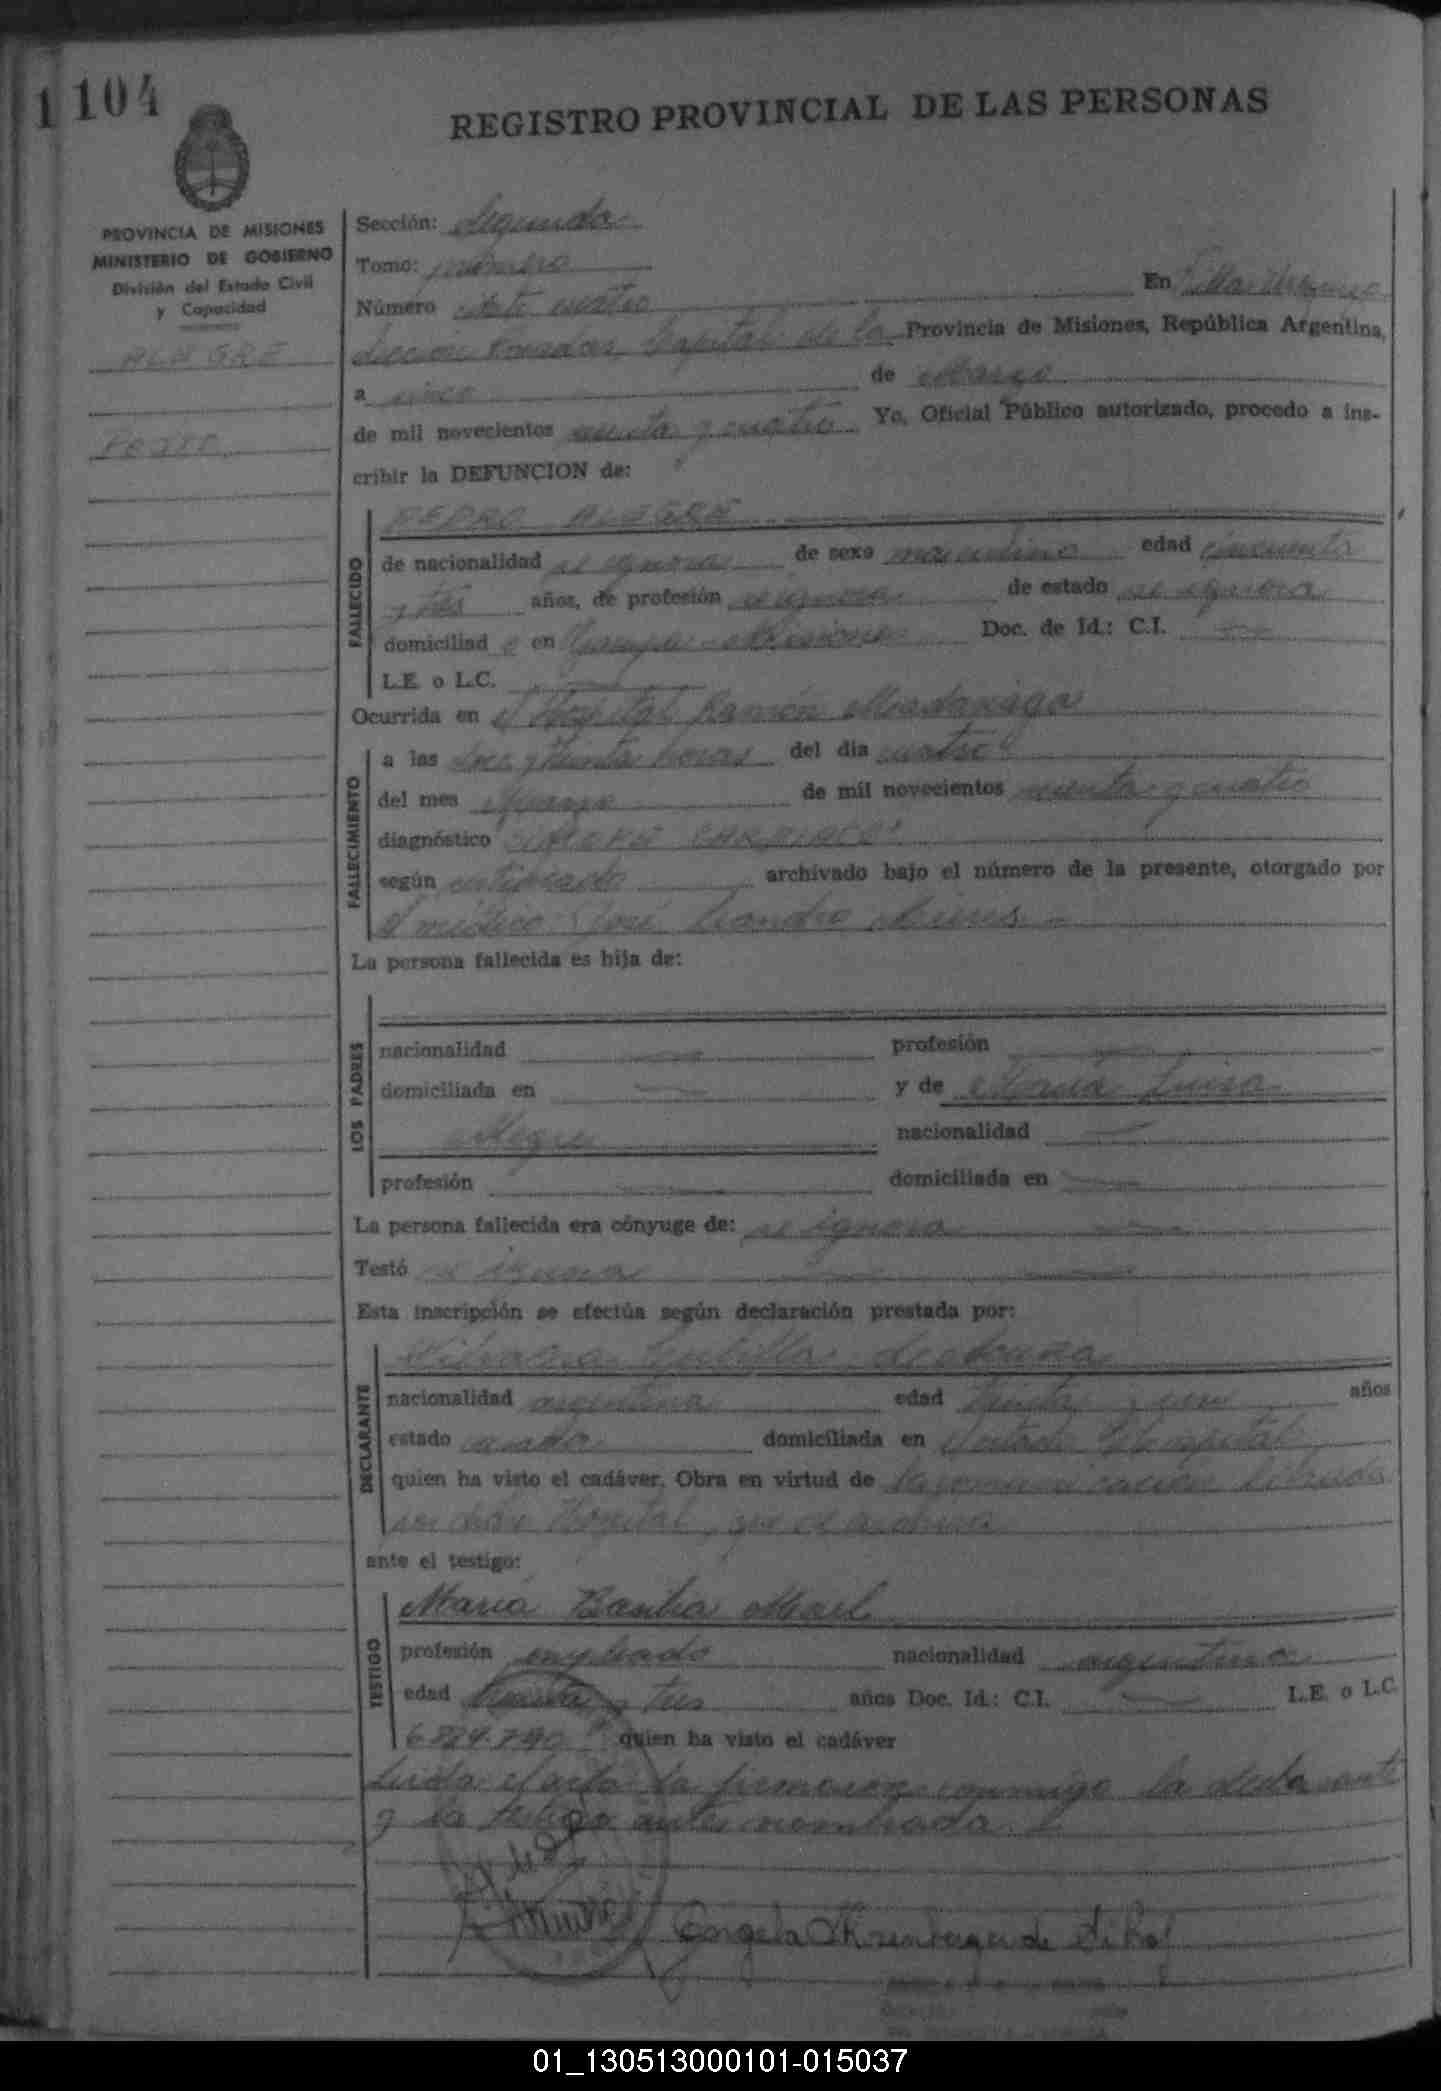 1 104
REGISTRO PROVINCIAL DE LAS PERSONAS
PROVINCIA DE MISIONES
MINISTERIO DE GOBIERNO
División del Estado Civil
y Capacidad
ALEGRE
Pedro
Sección: Segunda
Tomo: primero
Número ciento cuatro En Villa Urquiza
sección Posadas, Capital de la Provincia de Misiones, República Argentina,
a cinco de Marzo
de mil novecientos setenta y cuatro Yo, Oficial Público autorizado, procedo a ins-
cribir la DEFUNCION de:
FALLECIDO
PEDRO ALEGRE
de nacionalidad se ignora de sexo masculino edad cincuenta
y tres años, de profesión se ignora de estado se ignora
domiciliad o en Misiones Doc. de Id.: C.I.
L.E. o L.C.
Ocurrida en el Hospital Ramón Madariaga
FALLECIMIENTO
a las doce y treinta horas del día cuatro
del mes Marzo de mil novecientos setenta y cuatro
diagnóstico CARDIACO
según certificado archivado bajo el número de la presente, otorgado por
el médico: José Leandro
La persona fallecida es hija de:
LOS PADRES
nacionalidad profesión
domiciliada en y de María Luisa
Alegre nacionalidad
profesión domiciliada en
La persona fallecida era cónyuge de: se ignora
Testó se ignora
Esta inscripción se efectúa según declaración prestada por:
DECLARANTE
de Acuña
nacionalidad argentina edad treinta y un años
estado casada domiciliada en el citado Hospital
quien ha visto el cadáver. Obra en virtud de la comunicación librada
por dicho Hospital, que se archiva
ante el testigo:
TESTIGO
María
profesión empleada nacionalidad argentina
edad treinta y tres años Doc. Id.: C.I. L.E. o L.C.
quien ha visto el cadáver
Leída el acta la firmaron conmigo la declarante
y la testigo antes nombrada.
Angela de
01_130513000101-015037